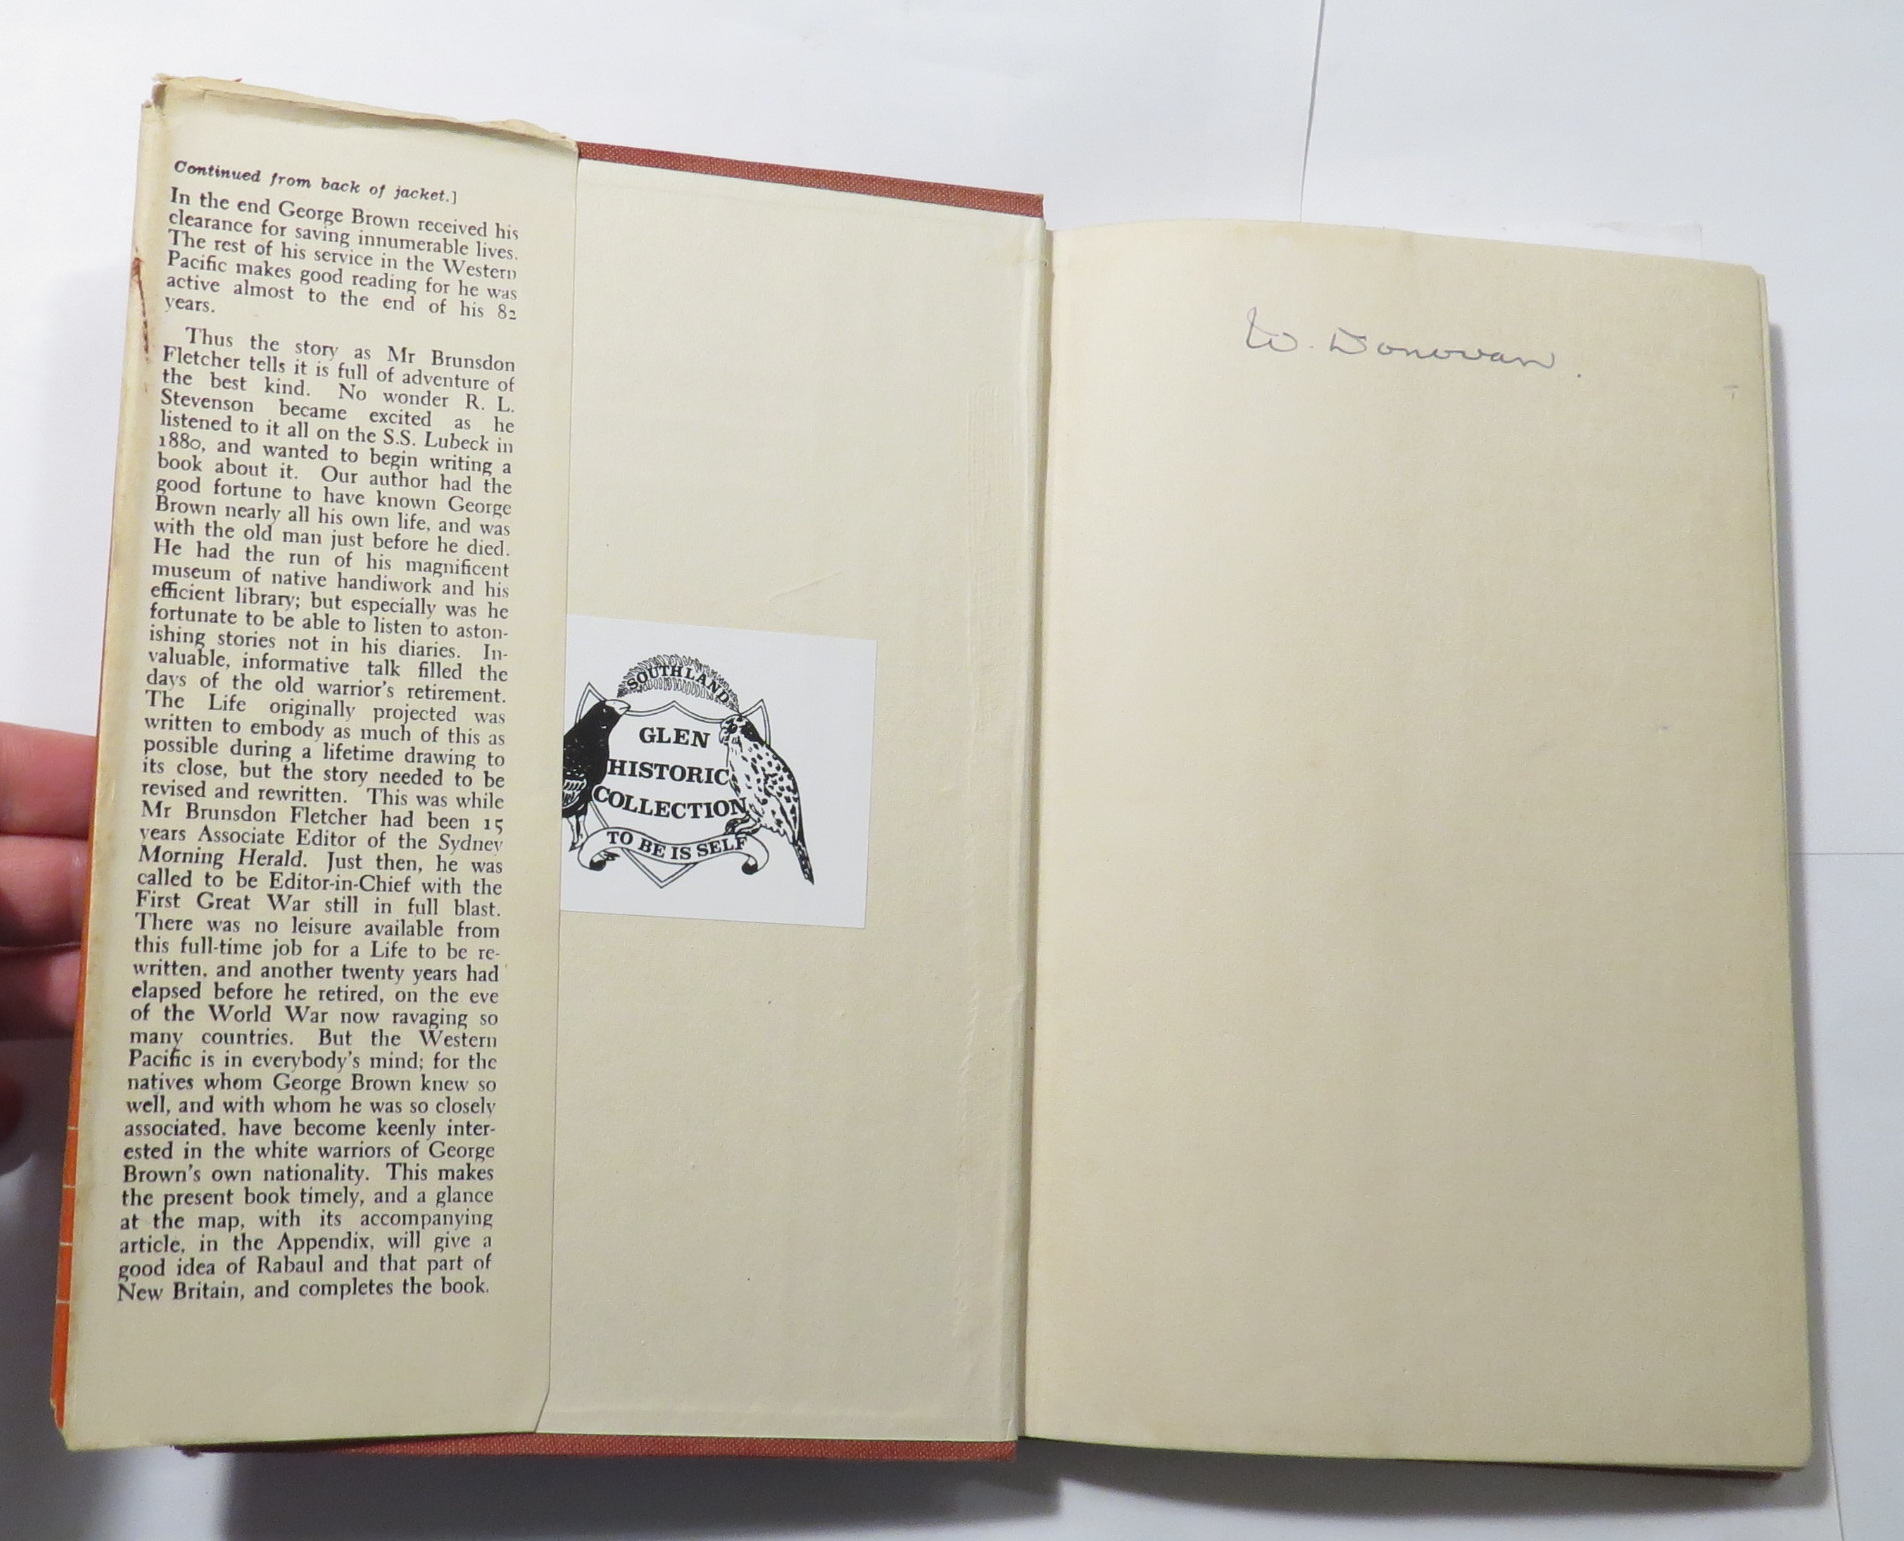 Continued from back of jacket.]
In the end George Brown received his
clearance for saving innumerable lives.
The rest of his service in the Western
Pacific makes good reading for he was
active almost to the end of his 82
years.
Thus the story as Mr Brunsdon
Fletcher tells it is full of adventure of
the best kind. No wonder R. L.
Stevenson became excited as he
listened to it all on the S.S. Lubeck in
1880, and wanted to begin writing a
book about it. Our author had the
good fortune to have known George
Brown nearly all his own life, and was
with the old man just before he died.
He had the run of his magnificent
museum of native handiwork and his
efficient library; but especially was he
fortunate to be able to listen to aston-
ishing stories not in his diaries. In-
valuable, informative talk filled the
days of the old warrior's retirement.
The Life originally projected was
written to embody as much of this as
possible during a lifetime drawing to
its close, but the story needed to be
revised and rewritten. This was while
Mr Brunsdon Fletcher had been 15
years Associate Editor of the Sydney
Morning Herald. Just then, he was
called to be Editor-in-Chief with the
First Great War still in full blast.
There was no leisure available from
this full-time job for a Life to be re-
written, and another twenty years had
elapsed before he retired, on the eve
of the World War now ravaging so
many countries. But the Western
Pacific is in everybody's mind; for the
natives whom George Brown knew so
well, and with whom he was so closely
associated, have become keenly inter-
ested in the white warriors of George
Brown's own nationality. This makes
the present book timely, and a glance
at the map, with its accompanying
article, in the Appendix, will give a
good idea of Rabaul and that part of
New Britain, and completes the book.
SOUTHLAND
GLEN
HISTORIC
COLLECTION
TO BE IS SELF
W. Donovan.